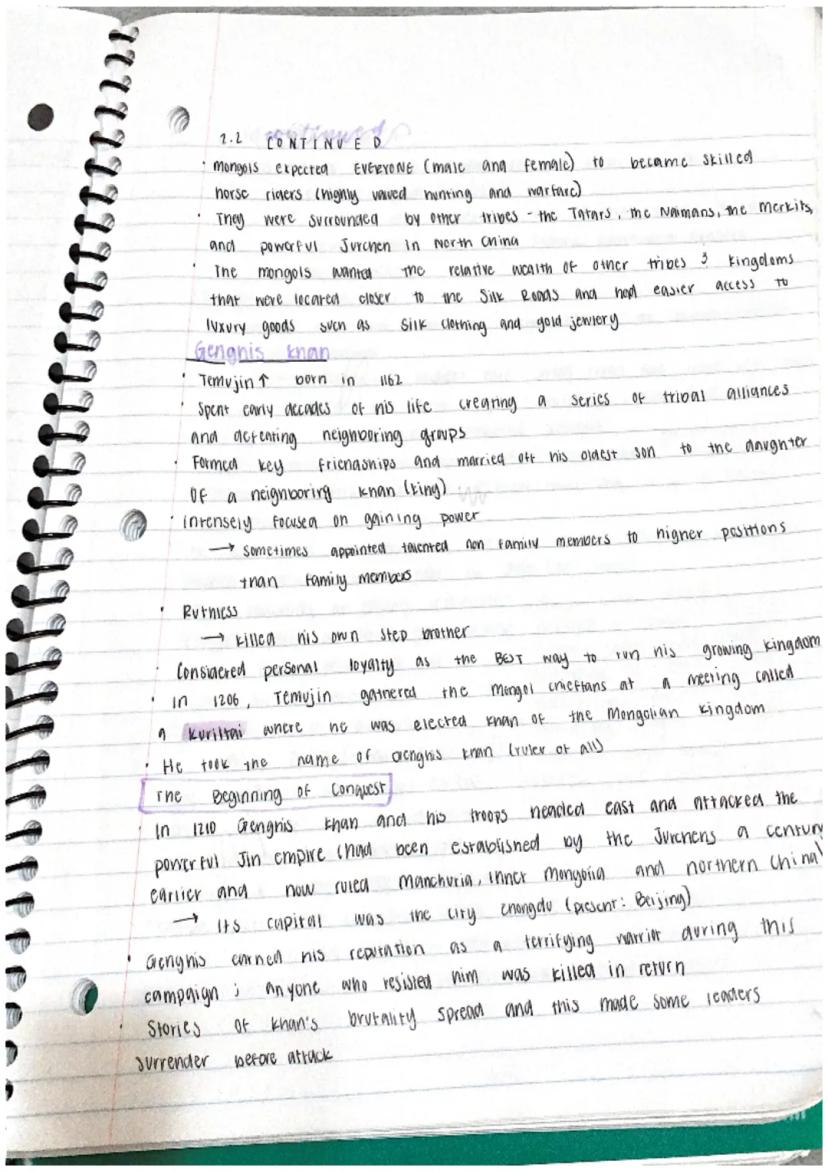 continued
2.2 CONTINUED
· mongols expected EVERYONE (male and female) to became skilled
horse riders (highly valued hunting and warfare)
· They were surrounded by other tribes - the Tatars, the Naimans, the Merkits,
and powerful Jurchen in North China
· The mongols wanted the relative wealth of other tribes & kingdoms
that were located closer to the Silk Roads and had easier access to
luxury goods such as silk clothing and gold jewlery
Genghis khan
· Temujin ↑ born in 1162
· Spent early decades of his life creating a series of tribal alliances
and defeating neighboring groups
· Formed key friendships and married off his oldest son to the daughter
of a neighboring khan (king)
· intensely focused on gaining power
→ sometimes appointed talented non family members to higher positions
than family members
· Ruthless
→ killed his own step brother
· Considered personal loyalty as the BEST way to run his growing kingdom
· In 1206, Temujin gathered the Mongol chieftans at a meeting called
a kuriltai where he was elected khan of the Mongolian kingdom
· He took the name of Genghis khan (ruler of all)
The Beginning of Conquest
· In 1210 Genghis khan and his troops headed east and attacked the
powerful Jin empire (had been established by the Jurchens a century
earlier and now ruled Manchuria, inner mongolia and northern china)
→ Its capital was the city zhongdu (present: Beijing)
· Genghis earned his reputation as a terrifying warrior during this
campaign ; anyone who resisted him was killed in return
· Stories of khan's brutality spread and this made some leaders
surrender before attack